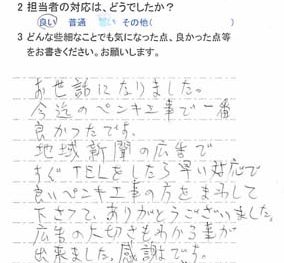 2 担当者の対応は、どうでしたか？
良い 普通 悪い その他( )
3 どんな些細なことでも気になった点、良かった点等
をお書きください。お願いします。
お世話になりました。
今迄のペンキ工事で一番
良かったです。
地域新聞の広告で
すぐTELをしたら早い対応で
良いペンキ工事の方をまわして
下さって、ありがとうございました。
広告の大切さもわかる事が
出来ました。感謝です。